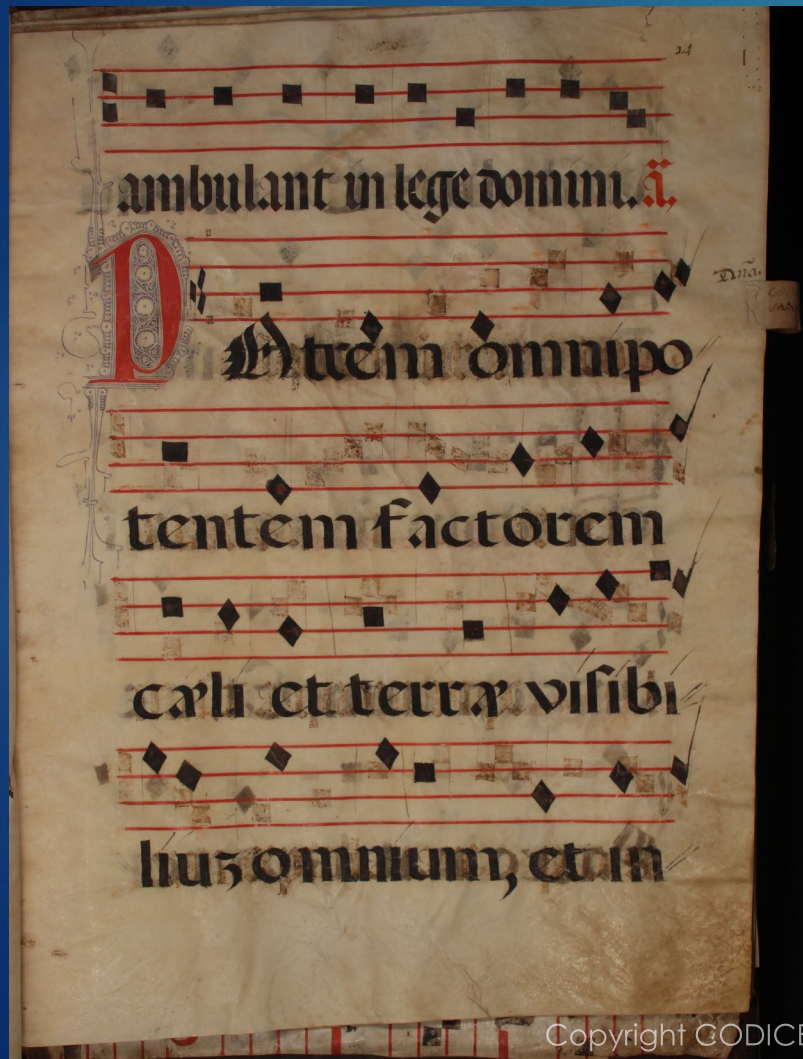 24
ambulant in lege domini. ã.
PAtrem omnipo
tentem factorem
cæli et terræ visibi
liuʒ omnium, et in
Copyright CODICE